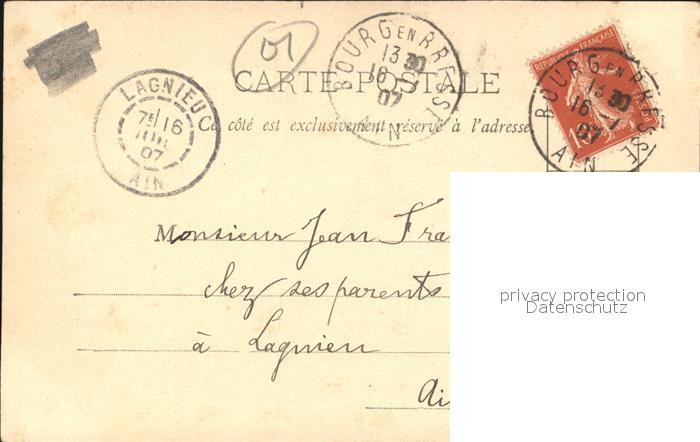 01
BOURG EN BRESSE
13 30
16 -7
07
AIN
REPUBLIQUE FRANÇAISE
10
POSTES
BOURG EN BRESSE
13 30
16 -7
07
AIN
CARTE POSTALE
LAGNIEU
7E 16
JUIL
07
AIN
Ce côté est exclusivement réservé à l'adresse
Monsieur Jean Fra
chez ses parents
à Lagnieu
Ai
privacy protection
Datenschutz